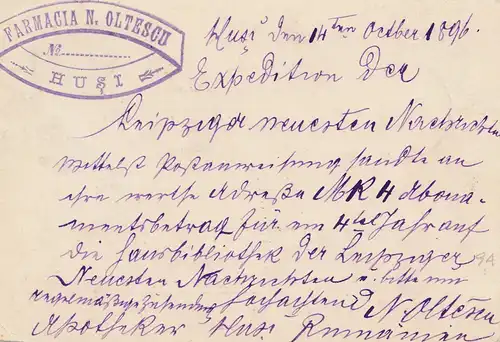 FARMACIA N. OLTESCU
No
HUȘI
Huși den 14ten October 1896.
Expedition der
Leipziger neuesten Nachrichten
Mittelst Postanweisung sandte an
ihre werthe Adresse MK 4 Abona-
mentsbetrag für ein 4tel Jahr auf
die Hausbibliothek der Leipziger
Neuesten Nachrichten u. bitte um
regelmäßige Zusendung Hochachtend N. Oltescu
Apotheker Huși Rumänien